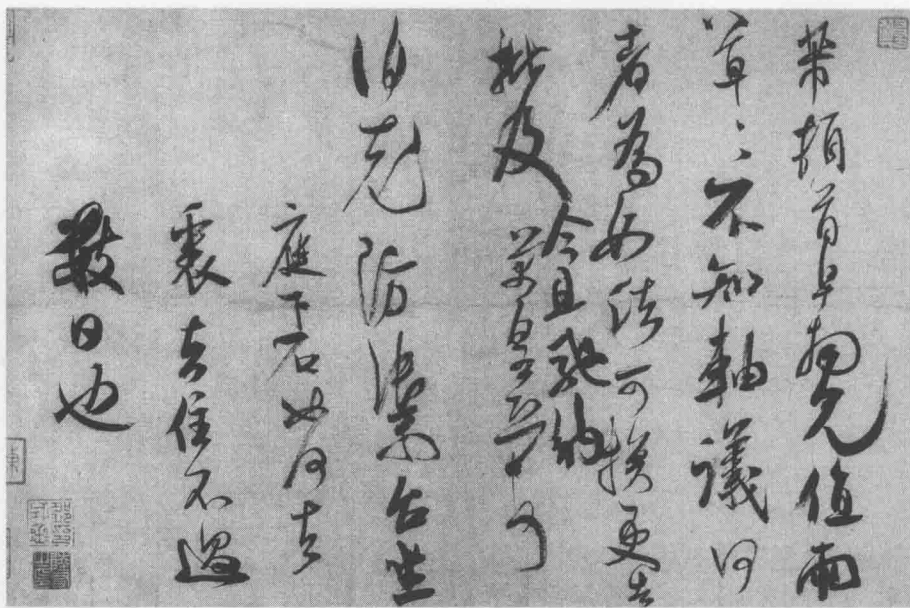 芾頓首早拜見值雨
草草不知軸議何
者為如法可換更告
批及今且馳納
芾皇恐頓首
伯充防禦台坐
庭下石如何去
裏去住不過
數日也